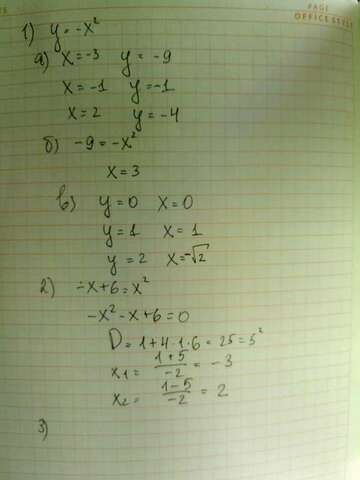 PAGE
1) y = -x²
а) x = -3 y = -9
x = -1 y = -1
x = 2 y = -4
б) -9 = -x²
x = 3
в) y = 0 x = 0
y = 1 x = 1
y = 2 x = -√2
2) -x+6 = x²
-x²-x+6=0
D = 1+4·1·6 = 25 = 5²
x₁ = (1+5)/-2 = -3
x₂ = (1-5)/-2 = 2
3)